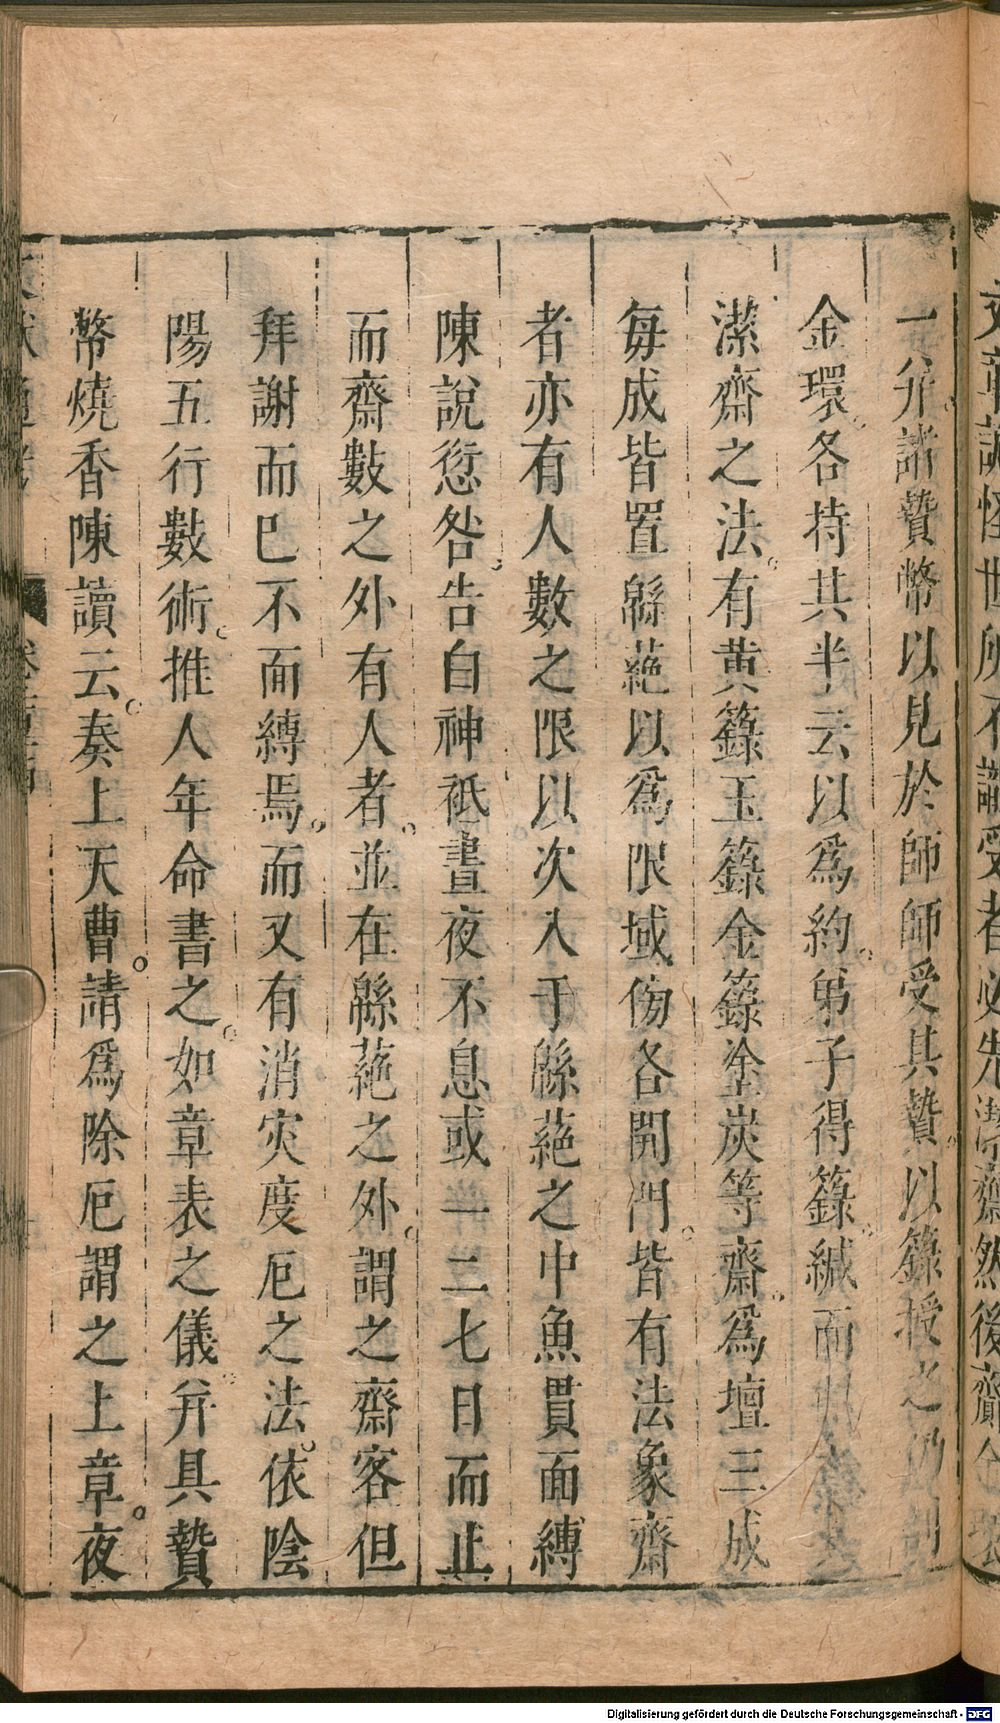 文章詭怪世所不識受者必先潔齋然後齎金環
一并諸贄幣以見於師師受其贄以籙授之仍剖
金環各持其半云以爲約弟子得籙緘而佩之其
潔齋之法有黄籙玉籙金籙塗炭等齋爲壇三成
每成皆置緜蕝以爲限域傍各開門皆有法象齋
者亦有人數之限以次入于緜蕝之中魚貫面縛
陳說愆咎告白神祇晝夜不息或一二七日而止
而齋數之外有人者並在緜蕝之外謂之齋客但
拜謝而已不面縛焉而又有消灾度厄之法依陰
陽五行數術推人年命書之如章表之儀并具贄
幣燒香陳讀云奏上天曹請爲除厄謂之上章夜
Digitalisierung gefördert durch die Deutsche Forschungsgemeinschaft - DFG